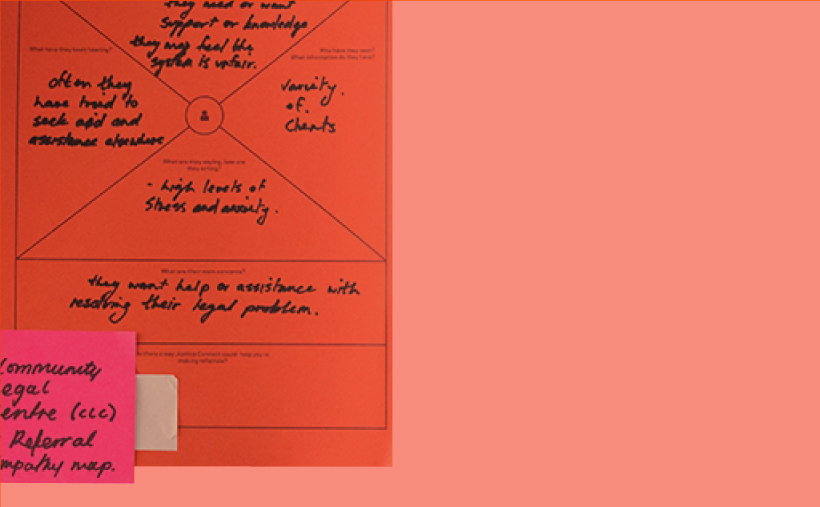 they need or want
support or knowledge
they may feel the
system is unfair.
What have they been hearing?
Who have they seen?
What information do they have?
often they
have tried to
seek aid and
assistance elsewhere
variety
of
clients
What are they saying, how are
they acting?
- high levels of
stress and anxiety.
What are their main concerns?
they want help or assistance with
resolving their legal problem.
Is there a way Justice Connect could help you in
making referrals?
ommunity
egal
entre (CLC)
Referral
mpathy map.